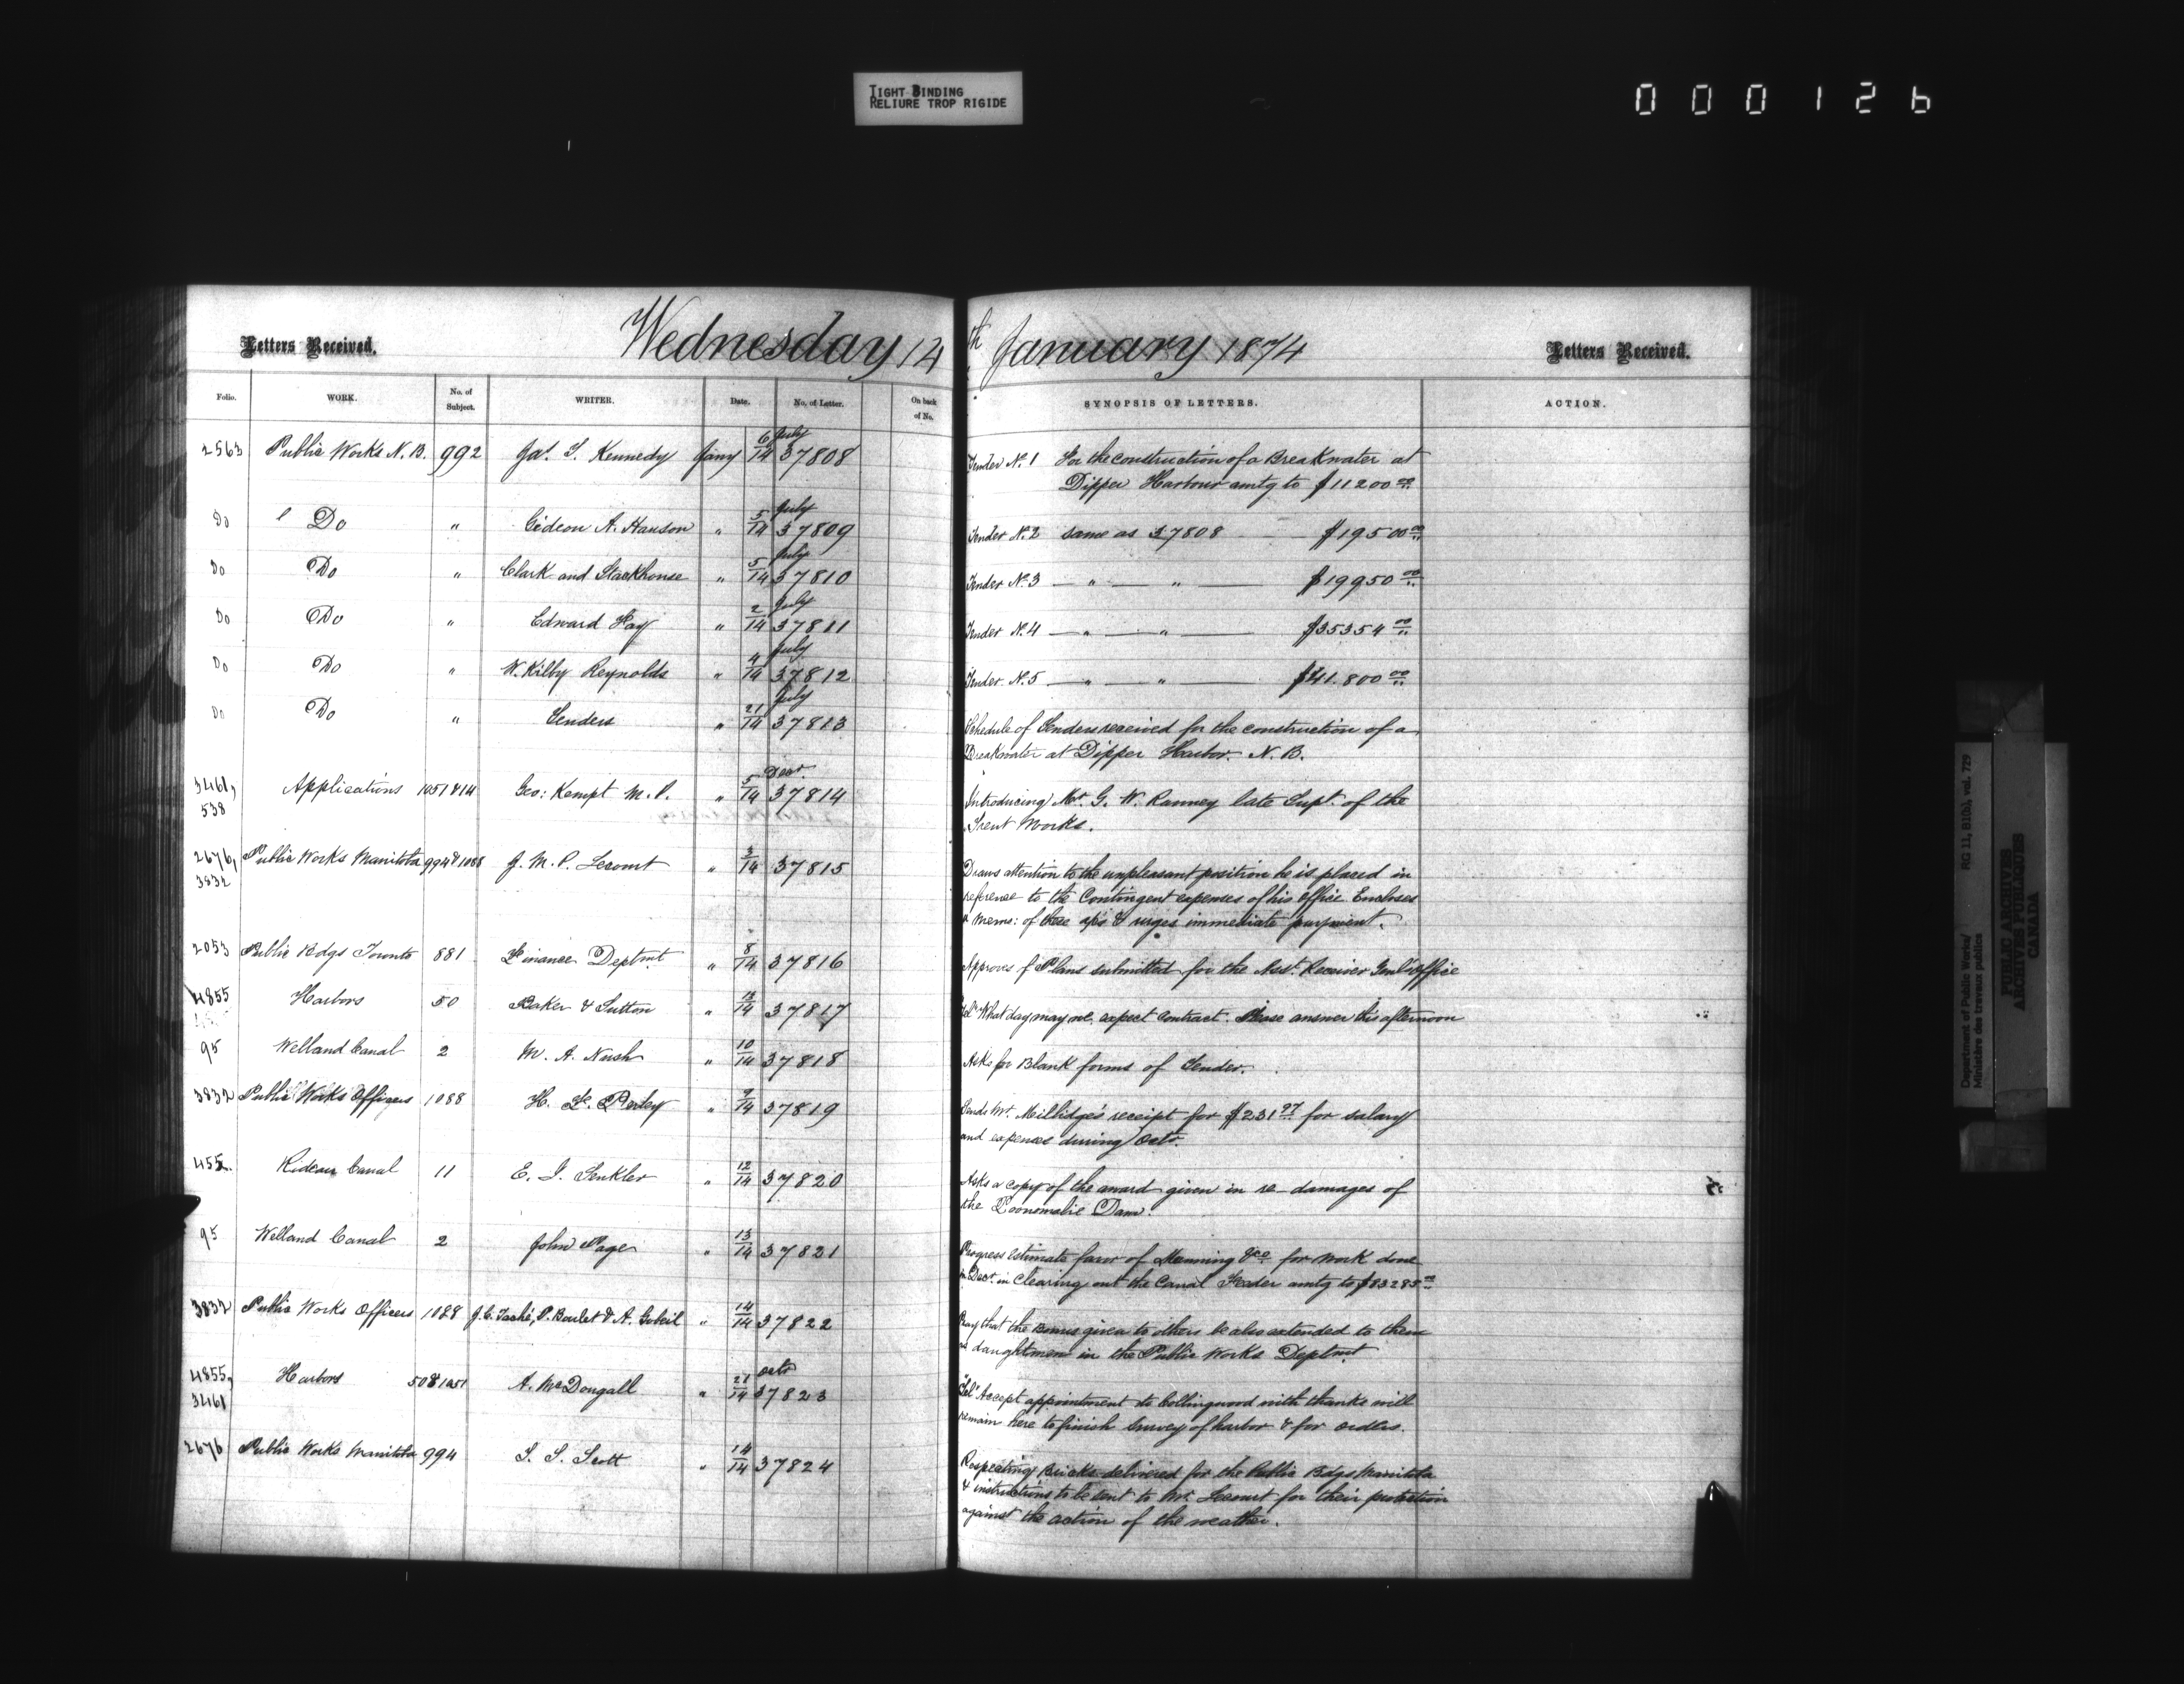 TIGHT BINDING
RELIURE TROP RIGIDE
000126
Letters Received.
Wednesday 14th January 1874
Letters Received.
Folio. WORK. No. of Subject. WRITER. Date. No. of Letter. On back of No. SYNOPSIS OF LETTERS. ACTION.
2563 Public Works N.B. 992 Jas. T. Kennedy Jany 6/14 July 37808 Tender No. 1 For the construction of a Breakwater at
Dipper Harbour amtg to $11200 00
Do Do " Gideon A. Hanson " 5/14 July 37809 Tender No. 2 same as 37808 $19500 00
Do Do " Clark and Stackhouse " 5/14 July 37810 Tender No. 3 " " $19950 00
Do Do " Edward Fay " 2/14 July 37811 Tender No. 4 " " $35354 00
Do Do " W. Kilby Reynolds " 4/14 July 37812 Tender No. 5 " " $41.800 00
Do Do " Tenders " 21/14 July 37813 Schedule of Tenders received for the construction of a
Breakwater at Dipper Harbor. N.B.
3461, 538 Applications 1051 & 14 Geo: Kempt M.P. " 5/14 Decr. 37814 Introducing Mr. G. W. Ranney late Supt. of the
Trent Works.
2676, 3832 Public Works Manitoba 994 & 1088 J. M. P. Lecourt " 3/14 37815 Draws attention to the unpleasant position he is placed in
reference to the Contingent expenses of his office Encloses
a Memo: of these & urges immediate payment.
2053 Public Bdgs Toronto 881 Finance Deptmt " 8/14 37816 Approves of Plans submitted for the Asst. Receiver Genl's Office
4855 Harbors 50 Baker & Sutton " 13/14 37817 "Tel" What day may we expect contract. Please answer this afternoon
95 Welland Canal 2 M. A. Nash " 10/14 37818 Asks for Blank forms of Tender.
3832 Public Works Officers 1088 H. F. Perley " 9/14 37819 Sends Mr. Millidge's receipt for $231 97 for salary
and expenses during Octr.
455. Rideau Canal 11 E. J. Senkler " 12/14 37820 Asks a copy of the award given in re-damages of
the Dam.
95 Welland Canal 2 John Page " 13/14 37821 Progress Estimate favor of Manning &co for work done
in Decr. in Clearing out the Canal Feeder amtg to $83285 00
3832 Public Works Officers 1088 J. C. Taché, P. Boulet & A. Gobeil " 14/14 37822 Pray that the Bonus given to others be also extended to them
as daughtmen in the Public Works Deptmt.
4855, 3461 Harbors 50 & 1051 A. McDougall " 21/14 octr 37823 "Tel" Accept appointment to Collingwood with thanks will
remain here to finish Survey of harbor & for orders.
2676 Public Works Manitoba 994 T. S. Scott " 14/14 37824 Respecting Bricks delivered for the Public Bdgs Manitoba
& instructions to be sent to Mr. Lecourt for their protection
against the action of the weather.
Department of Public Works/
Ministère des travaux publics
RG 11, B1(b), vol. 729
PUBLIC ARCHIVES
ARCHIVES PUBLIQUES
CANADA